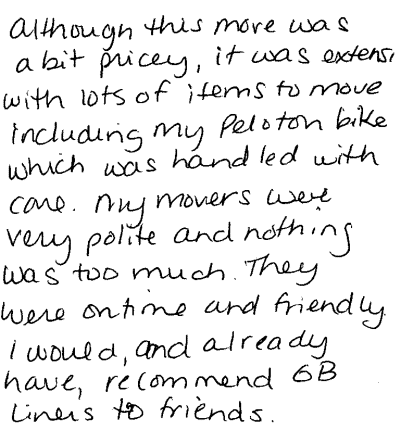 Although this move was
a bit pricey, it was extensi
with lots of items to move
including my Peloton bike
which was handled with
care. My movers were
very polite and nothing
was too much. They
were on time and friendly
I would, and already
have, recommend GB
Liners to friends.